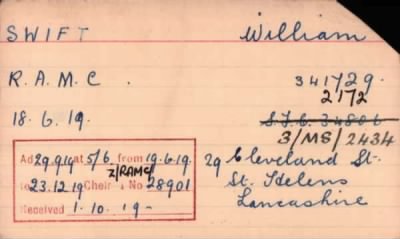 SWIFT William
R.A.M.C. 341729.
2172
18.6.19. S.J.C. 34806
3/MS/2434
Ad 29.9.19 at 5/6 from 19.6.19. 29 Cleveland St.
Z/RAMC/
to 23.12.19 Chelr No 28901 St. Helens
Received 1.10.19- Lancashire